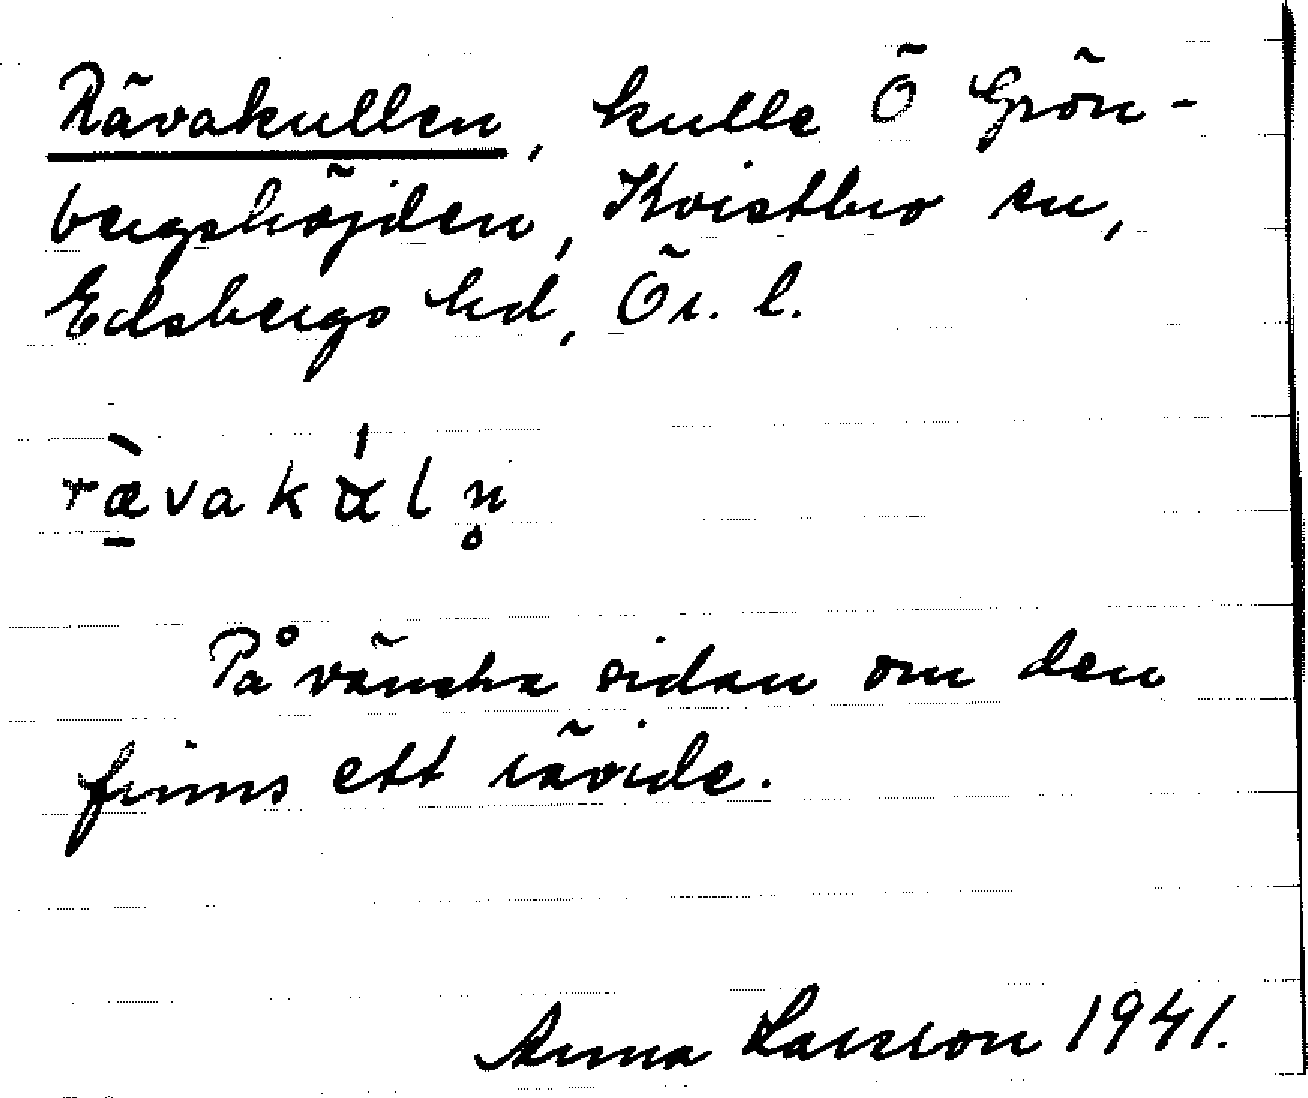 Rävakullen, kulle Ö Grön-
bergshöjden, Kvistbro sn,
Edsbergs hd, Ör. l.
ræ̠̀vakα̈́ln̥
På vänstra sidan om den
finns ett rävide.
Anna Larsson 1941.